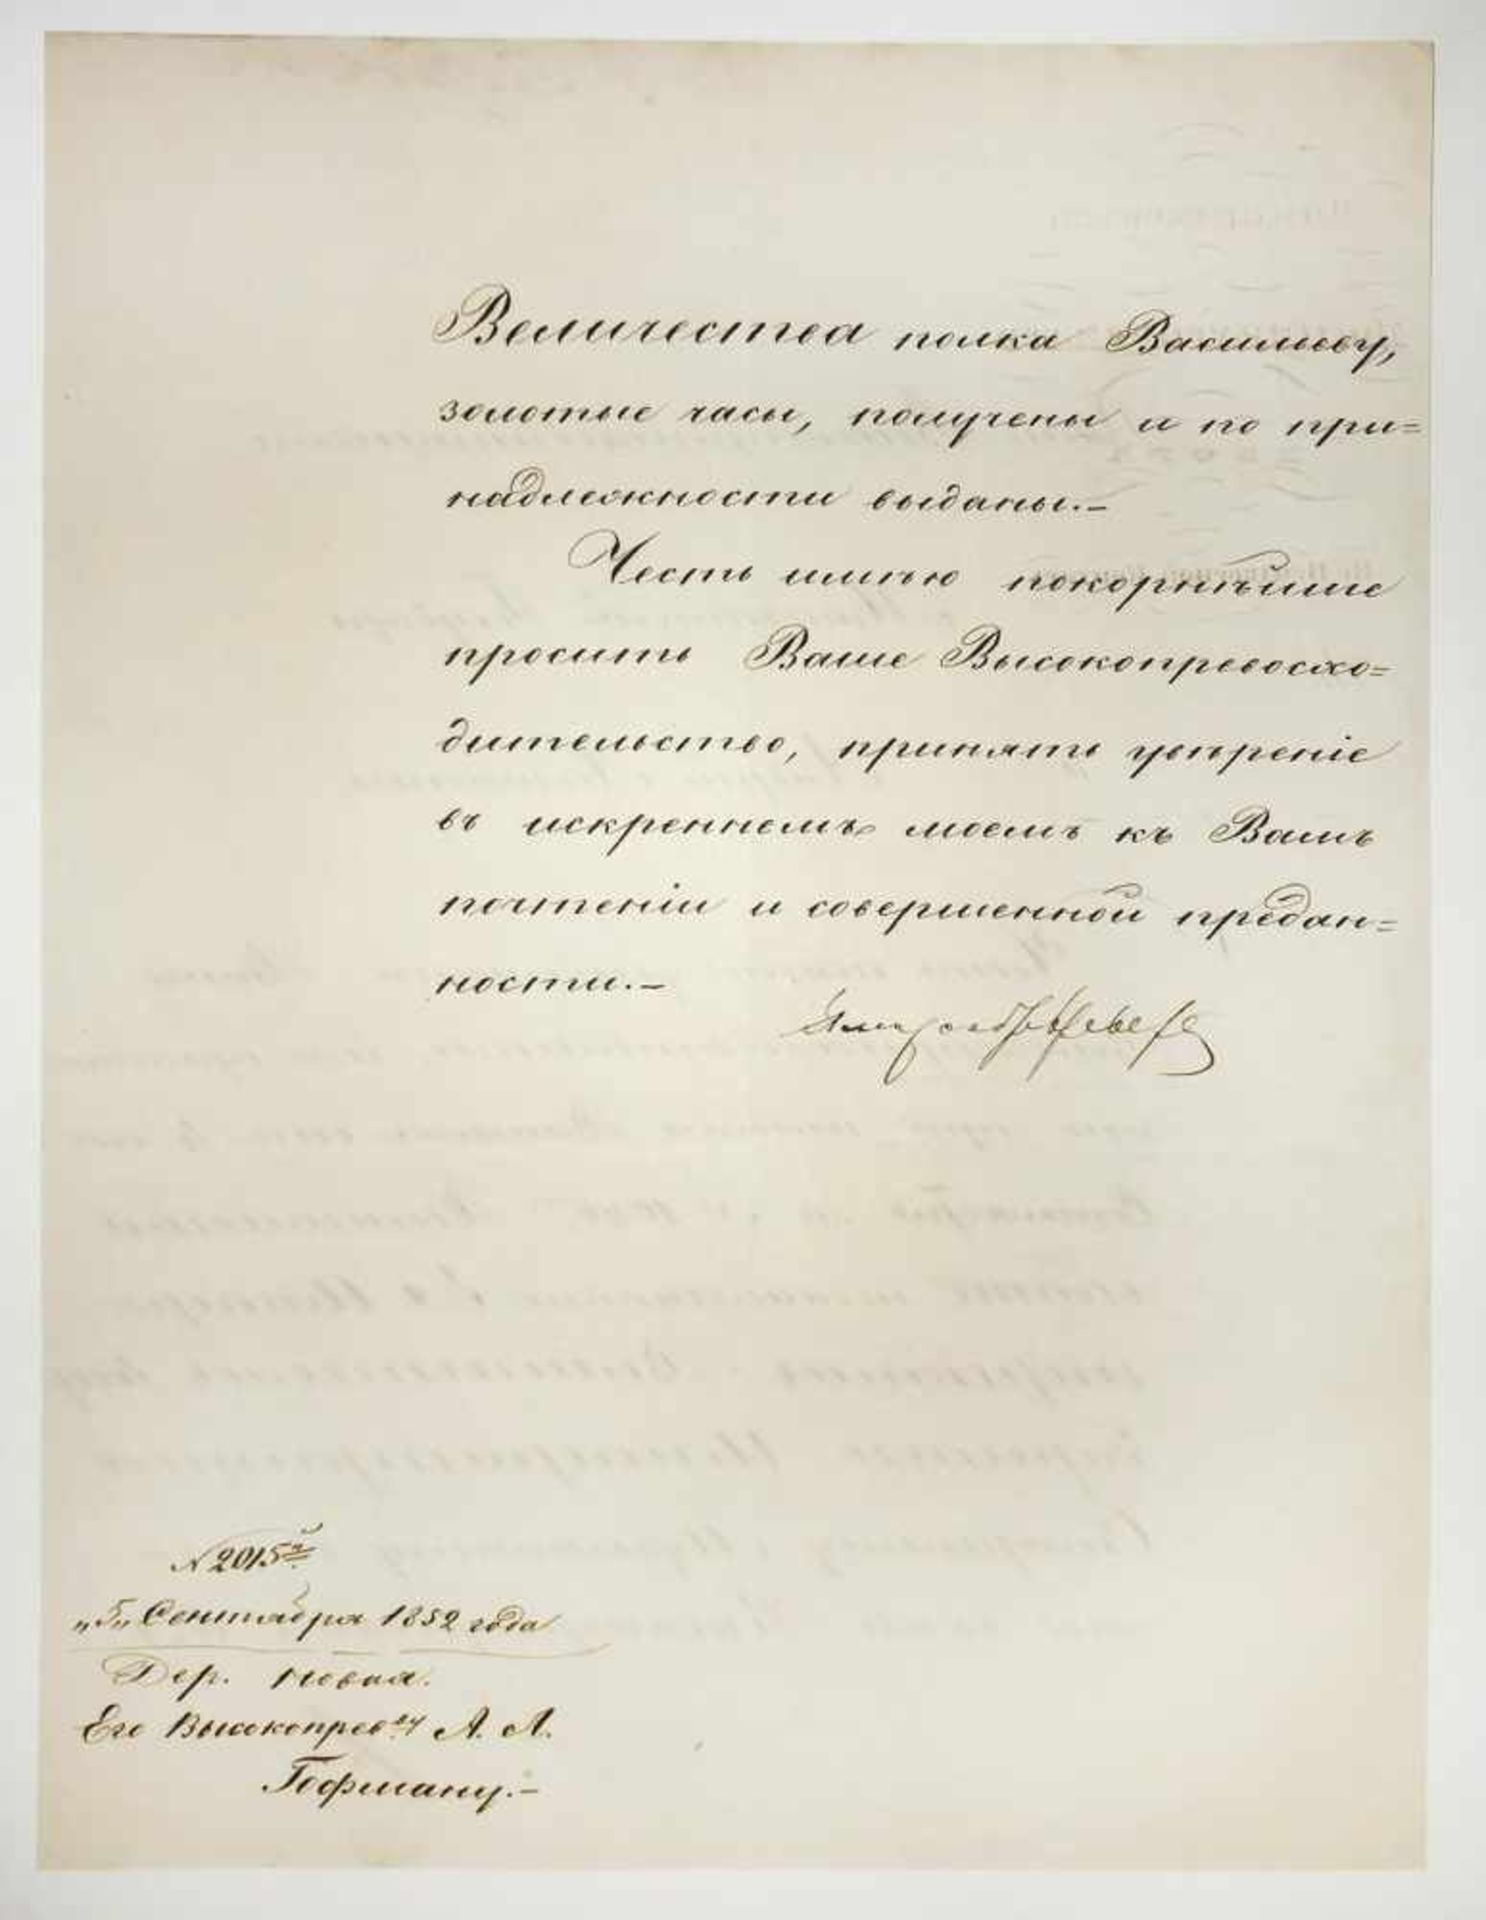 Величества полка Васильеву,
золотые часы, получены и по при=
надлежности выданы.—
Честь имѣю покорнѣйше
просить Ваше Высокопревосхо=
дительство, принять увѣреніе
въ искреннемъ моемъ къ Вамъ
почтеніи и совершенной предан=
ности.—
№ 2015й
„5„ Сентября 1852 года
Дер. Новая.
Его Высокопрев⁠ву А. Л.
Гофману.—